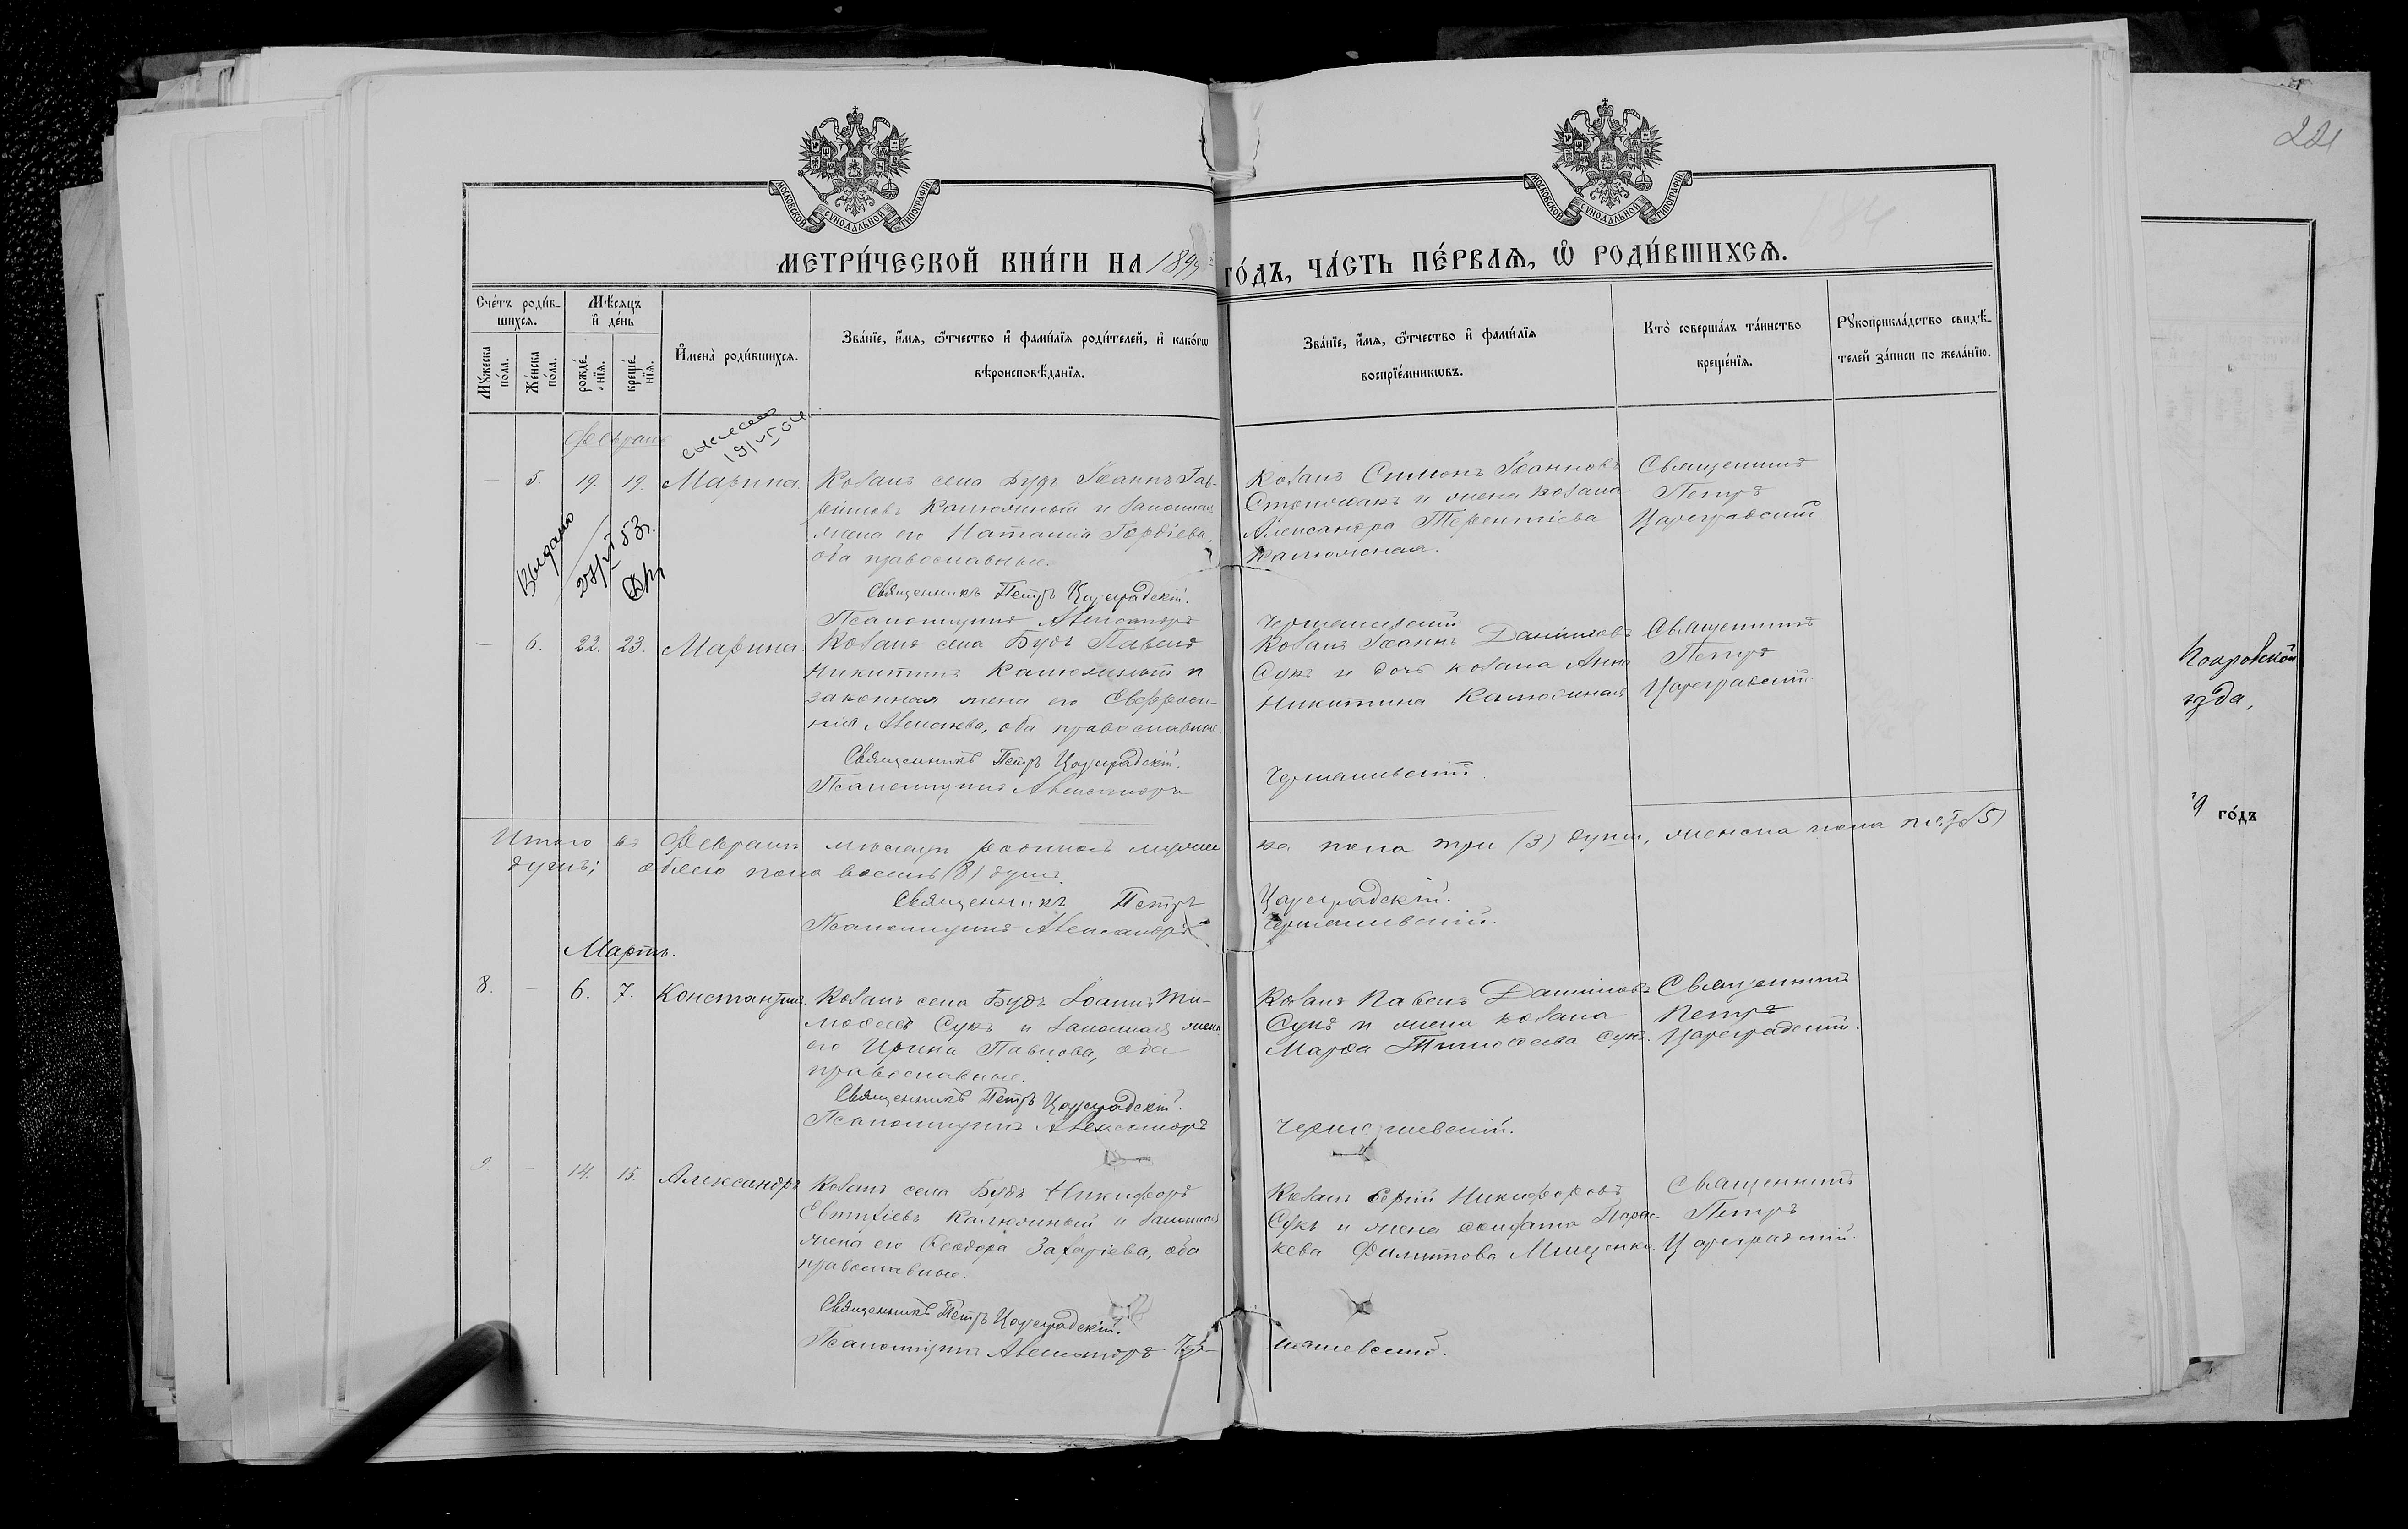 МОСКОВСКОЙ СѴНОДАЛЬНОЙ ТИПОГРАФІИ
МОСКОВСКОЙ СѴНОДАЛЬНОЙ ТИПОГРАФІИ
221
184
МЕТРИ́ЧЕСКОЙ КНИ́ГИ НА 1899 ГО́ДЪ, ЧА́СТЬ ПЕ́РВАѦ, Ѡ҆ РОДИ́ВШИХСѦ.
Сче́тъ роди́в-
шихсѧ.
Мѣ́сѧцъ
и҆ де́нь
Мꙋ́жеска по́ла.
Же́нска по́ла.
рожде́-
нїѧ.
креще́-
нїѧ.
И҆мена̀ роди́вшихсѧ.
Зва́нїе, и҆́мѧ, ѻ҆́тчество и҆ фами́лїѧ роди́телей, и҆ како́гѡ
вѣроисповѣ́данїѧ.
Зва́нїе, и҆́мѧ, ѻ҆́тчество и҆ фами́лїѧ
воспрїе́мникѡвъ.
Кто̀ соверша́лъ та́инство
креще́нїѧ.
Рꙋкоприкла́дство свидѣ́-
телей за́писи по жела́нїю.
Февраль
— 5. 19. 19. Марина.
Козакъ села Будъ Іоаннъ Гав-
рииловъ Калюжный и законная
жена его Наталія Гордіева,
оба православные.
Священникъ Петръ Цареградскій.
Псаломщикъ Александръ
Козакъ Симонъ Іоанновъ
и жена козака
Александра Терентіева
Калюжная.
Священникъ
Петръ
Цареградскій.
Выдано
53г.
— 6. 22. 23. Марина.
Козакъ села Будъ Павелъ
Никитинъ Калюжный и
законная жена его Евфроси-
нія Алексіева, оба православные.
Священникъ Петръ Цареградскій.
Псаломщикъ Александръ
Козакъ Іоаннъ Даніиловъ
Сукъ и дочь козака Анна
Никитина Калюжная
Священникъ
Петръ
Цареградскій.
Итого въ Февралѣ мѣсяцѣ родилось мужес-
ка пола три (3) души, женска пола пять (5)
душъ; обоего пола восемь (8) душъ.
Священникъ Петръ Цареградскій.
Псаломщикъ Александръ
Мартъ.
8. — 6. 7. Константинъ.
Козакъ села Будъ Іоаннъ Ти-
мофеевъ Сукъ и законная жена
его Ирина Павлова, оба
православные.
Священникъ Петръ Цареградскій.
Псаломщикъ Александръ
Козакъ Павелъ Даніиловъ
Сукъ и жена козака
Марфа Тимофеева Сукъ.
Священникъ
Петръ
Цареградскій.
9. — 14. 15. Александръ
Козакъ села Будъ Никифоръ
Евтихіевъ Калюжный и законная
жена его Ѳеодора Захаріева, оба
православные.
Священникъ Петръ Цареградскій.
Псаломщикъ Александръ
Козакъ Сергій Никифоровъ
Сукъ и жена солдата Парас-
кева Филиппова Мищенко.
Священникъ
Петръ
Цареградскій.
Покровской
ѣзда,
9 го́дъ